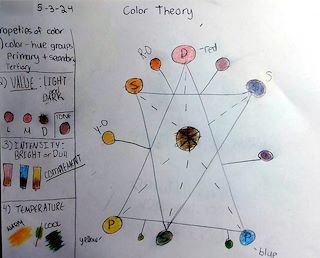 5-3-24
Color Theory
opeties of color
)color-hue groups
Primary + secondary
Tertiary
2) VALUE: LIGHT
DARK
L M D TONE
3) INTENSITY:
BRIGHT or Dull
COMPLEMENT
4) TEMPERATURE
WARM COOL
R.O
P
-red
S
S
Y-O
P
yellow
S
P
-blue